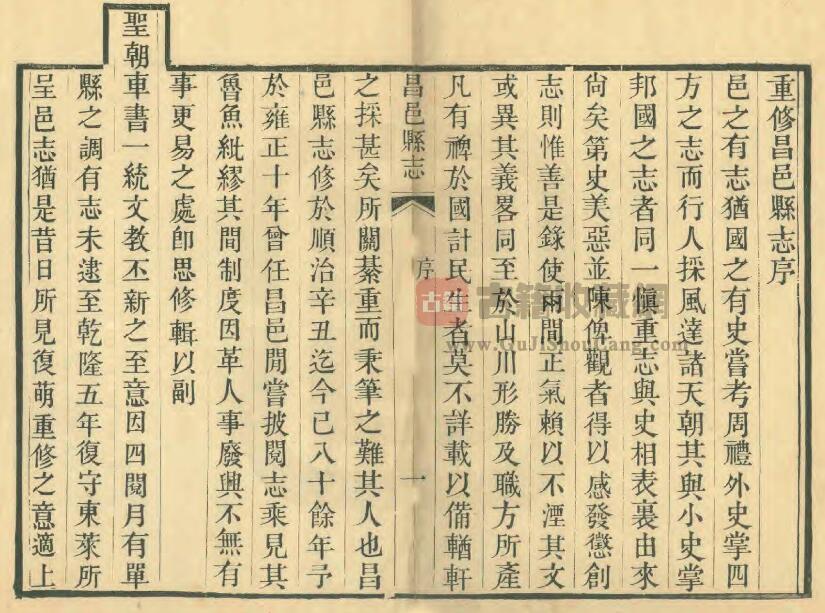 重修昌邑縣志序
邑之有志猶國之有史嘗考周禮外史掌四
方之志而行人採風達諸天朝其與小史掌
邦國之志者同一愼重志與史相表裏由來
尙矣第史美惡並陳俾觀者得以感發懲創
志則惟善是錄使兩間正氣賴以不湮其文
或異其義畧同至於山川形勝及職方所產
凡有裨於國計民生者莫不詳載以備輶軒
昌邑縣志 序 一
之採甚矣所關綦重而秉筆之難其人也昌
邑縣志修於順治辛丑迄今已八十餘年予
於雍正十年曾任昌邑閒嘗披閱志乘見其
魯魚紕繆其間制度因革人事廢興不無有
事更易之處卽思修輯以副
聖朝車書一統文教丕新之至意因四閱月有單
縣之調有志未逮至乾隆五年復守東萊所
呈邑志猶是昔日所見復萌重修之意適上
古籍 古籍收藏網
www.GuJiShouCang.com